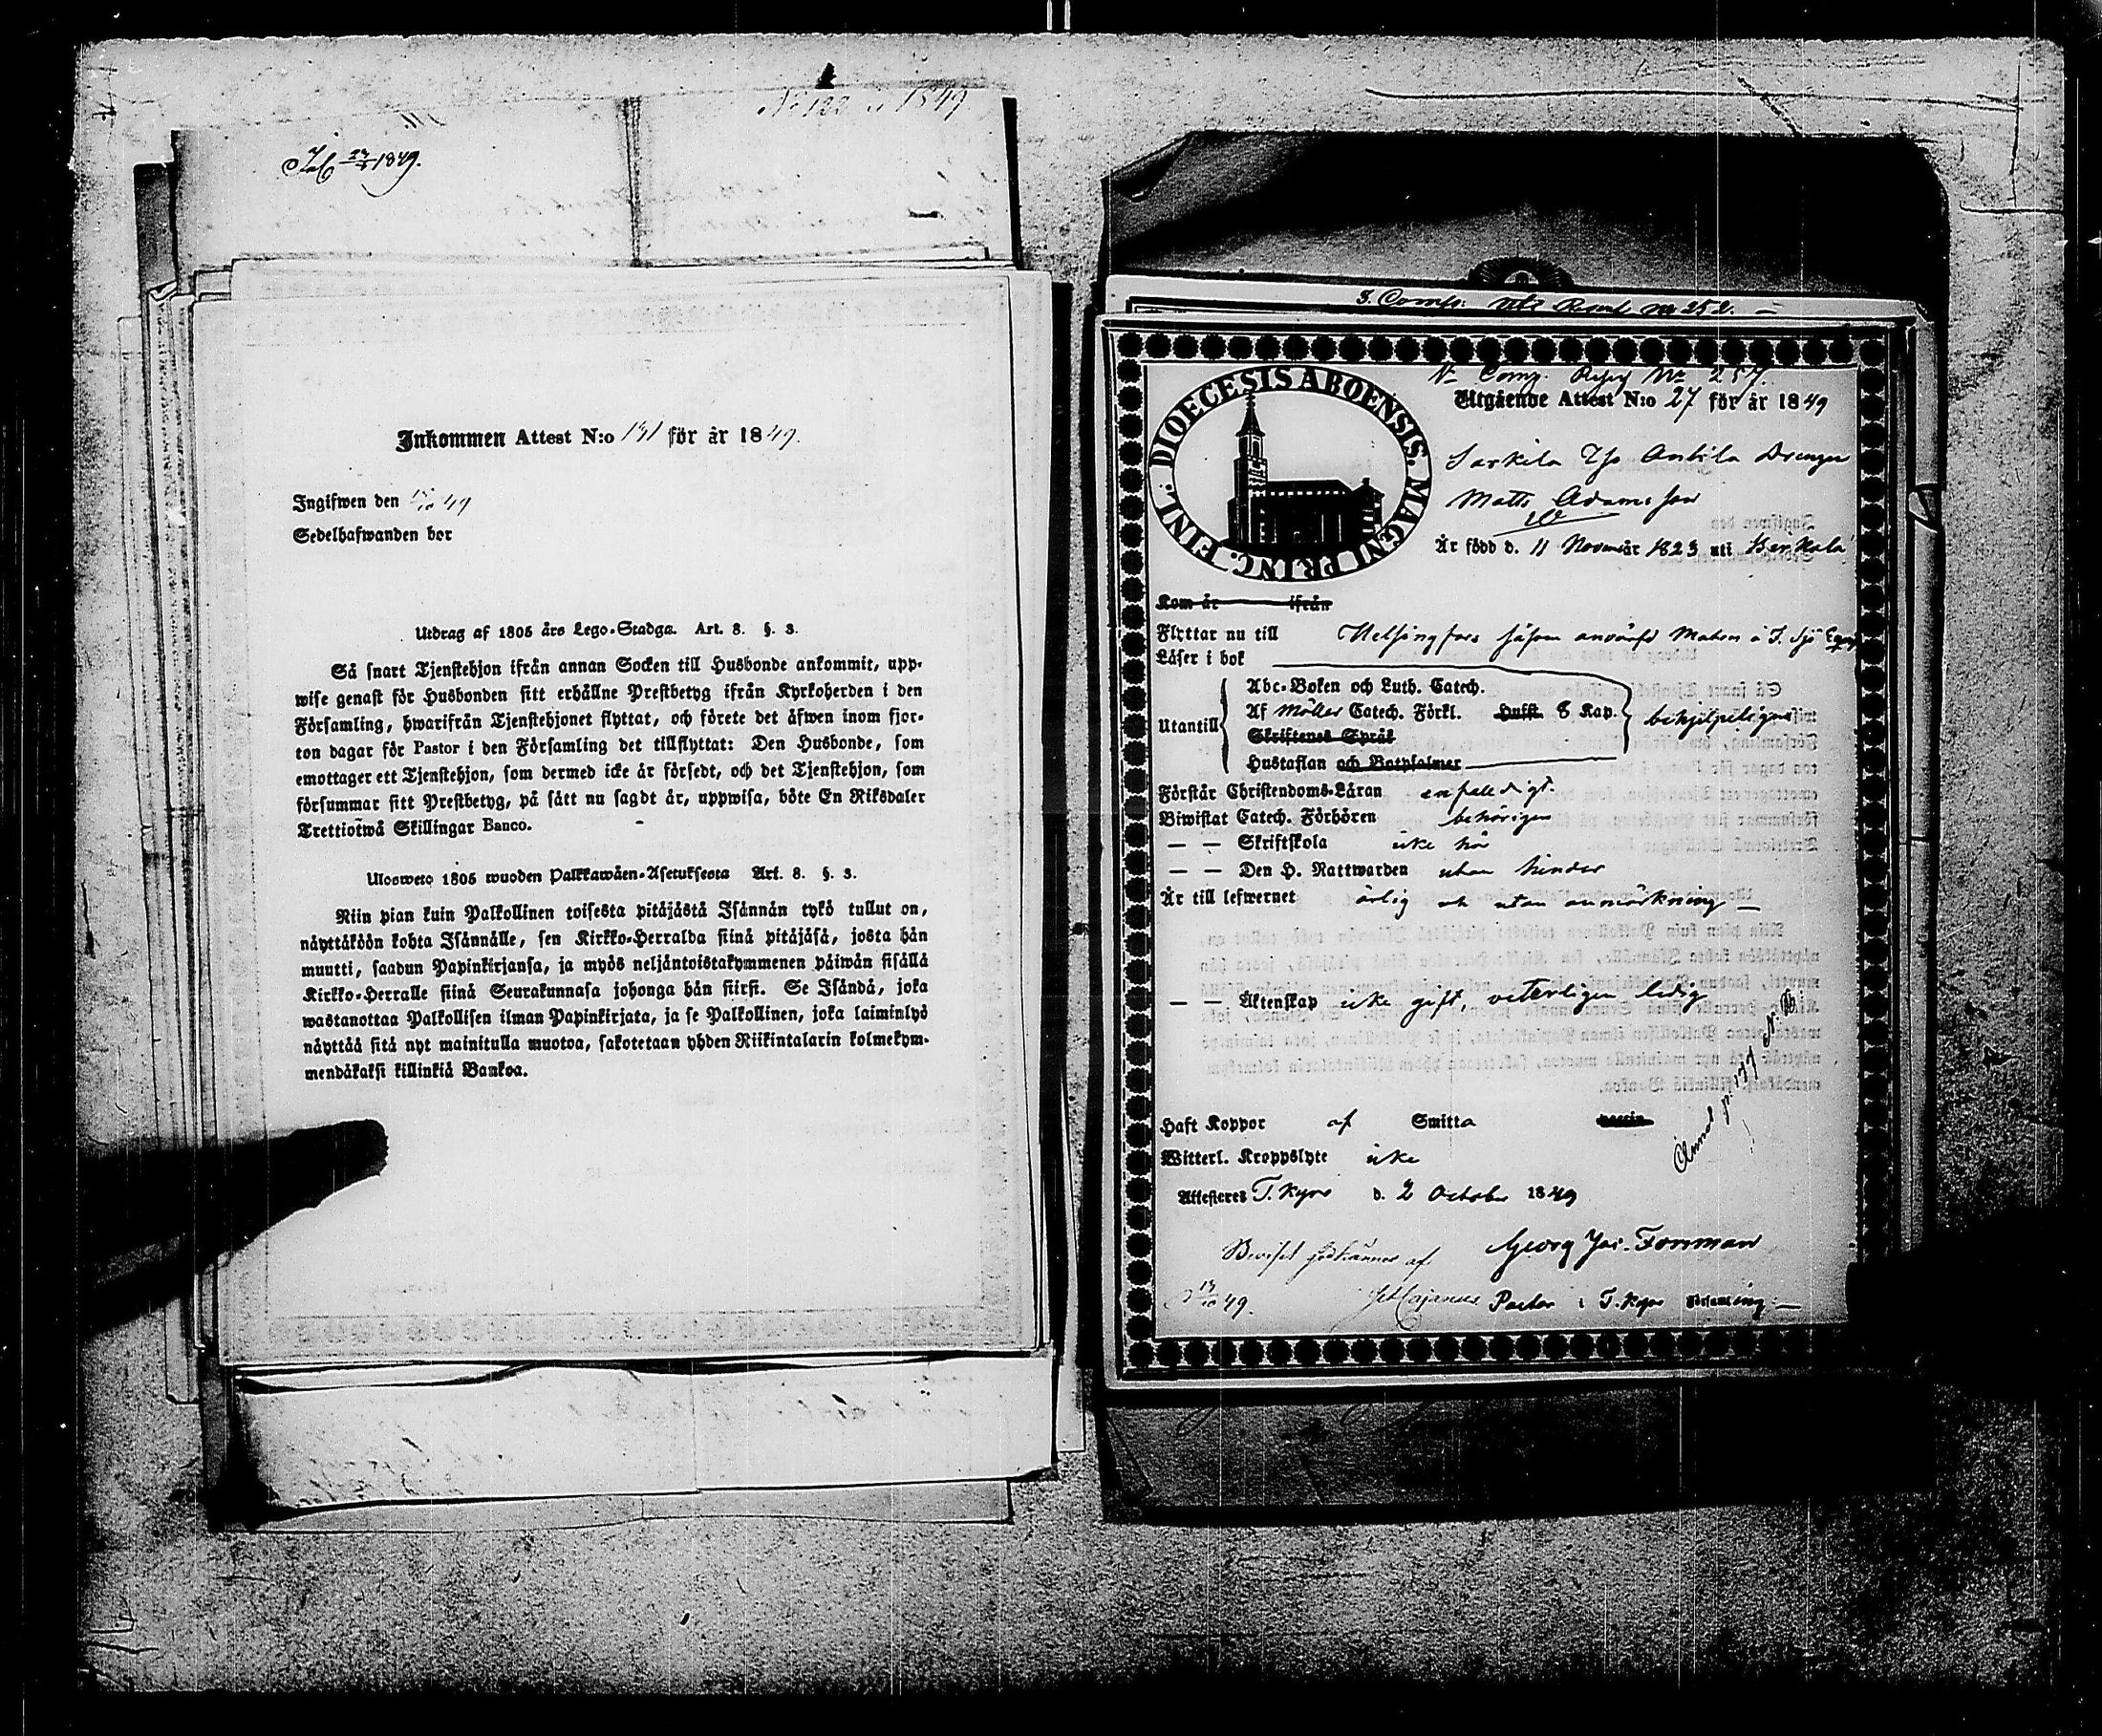 No 122 1849
1849.
Inkommen Attest N:o 131 för år 1849.
Ingifwen den 49
Sedelhafwanden bor
Utdrag af 1805 års Lego-Stadga. Art. 8. §. 3.
Så snart Tjenstehjon ifrån annan Socken till Husbonde ankommit, upp-
wise genast för Husbonden sitt erhållne Prestbetyg ifrån Kyrkoherden i den
Församling, hwarifrån Tjenstehjonet flyttat, och förete det äfwen inom fjor-
ton dagar för Pastor i den Församling det tillflyttat: Den Husbonde, som
emottager ett Tjenstehjon, som dermed icke är försedt, och det Tjenstehjon, som
försummar sitt Prestbetyg, på sätt nu sagdt är, uppwisa, böte En Riksdaler
Trettiotwå Skillingar Banco.
Uloswеto 1805 wuoden Palkkawäen-Asetuksesta Art. 8. §. 3.
Niin pian kuin Palkollinen toisesta pitäjästä Isännän tykö tullut on,
näyttäköön kohta Isännälle, sen Kirkko-Herralda siinä pitäjäsä, josta hän
muutti, saadun Papinkirjansa, ja myös neljäntoistakymmenen päiwän sisällä
Kirkko-Herralle siinä Seurakunnasa johonga hän siirsi. Se Isändä, joka
wastanottaa Palkollisen ilman Papinkirjata, ja se Palkollinen, joka laiminlyö
näyttää sitä nyt mainitulla muotoa, sakotetaan yhden Riikintalarin kolmekym-
mendäkaksi killinkiä Bankoa.
3. Comp. Rec No 252.
Comp. No 257.
DIOECESIS ABOENSIS. MAGNI PRINC. FINL:
Utgående Attest N:o 27 för år 1849
Sarkila Antila Drengen
Matts Adamsson
Är född d. 11 November 1823 uti Birkala
Kom år ifrån
Flyttar nu till Helsingfors såsom anvärfd Matros å 1. Sjö Equip
Läser i bok
Abc-Boken och Luth. Catech.
Utantill Af Möller Catech. Förkl. Husst. 8 Kap. behjelpeligen
Skriftenes Språk
Hustaflan och Botpsalmer
Förstår Christendoms-Läran enfaldigt.
Biwistat Catech. Förhören behörigen
— — Skriftskola icke här
— — Den H. Nattwarden utan hinder
Är till lefwernet ärlig och utan anmärkning —
— — Äktenskap icke gift, veterligen ledig
Haft Koppor af Smitta vaccin
Witterl. Kroppslyte icke
Attesteres T. Kyro d. 2 October 1849
Georg Jac. Forsman
Beviset godkännes af
49. Cajanus Pastor i T. Kyro Församling. —